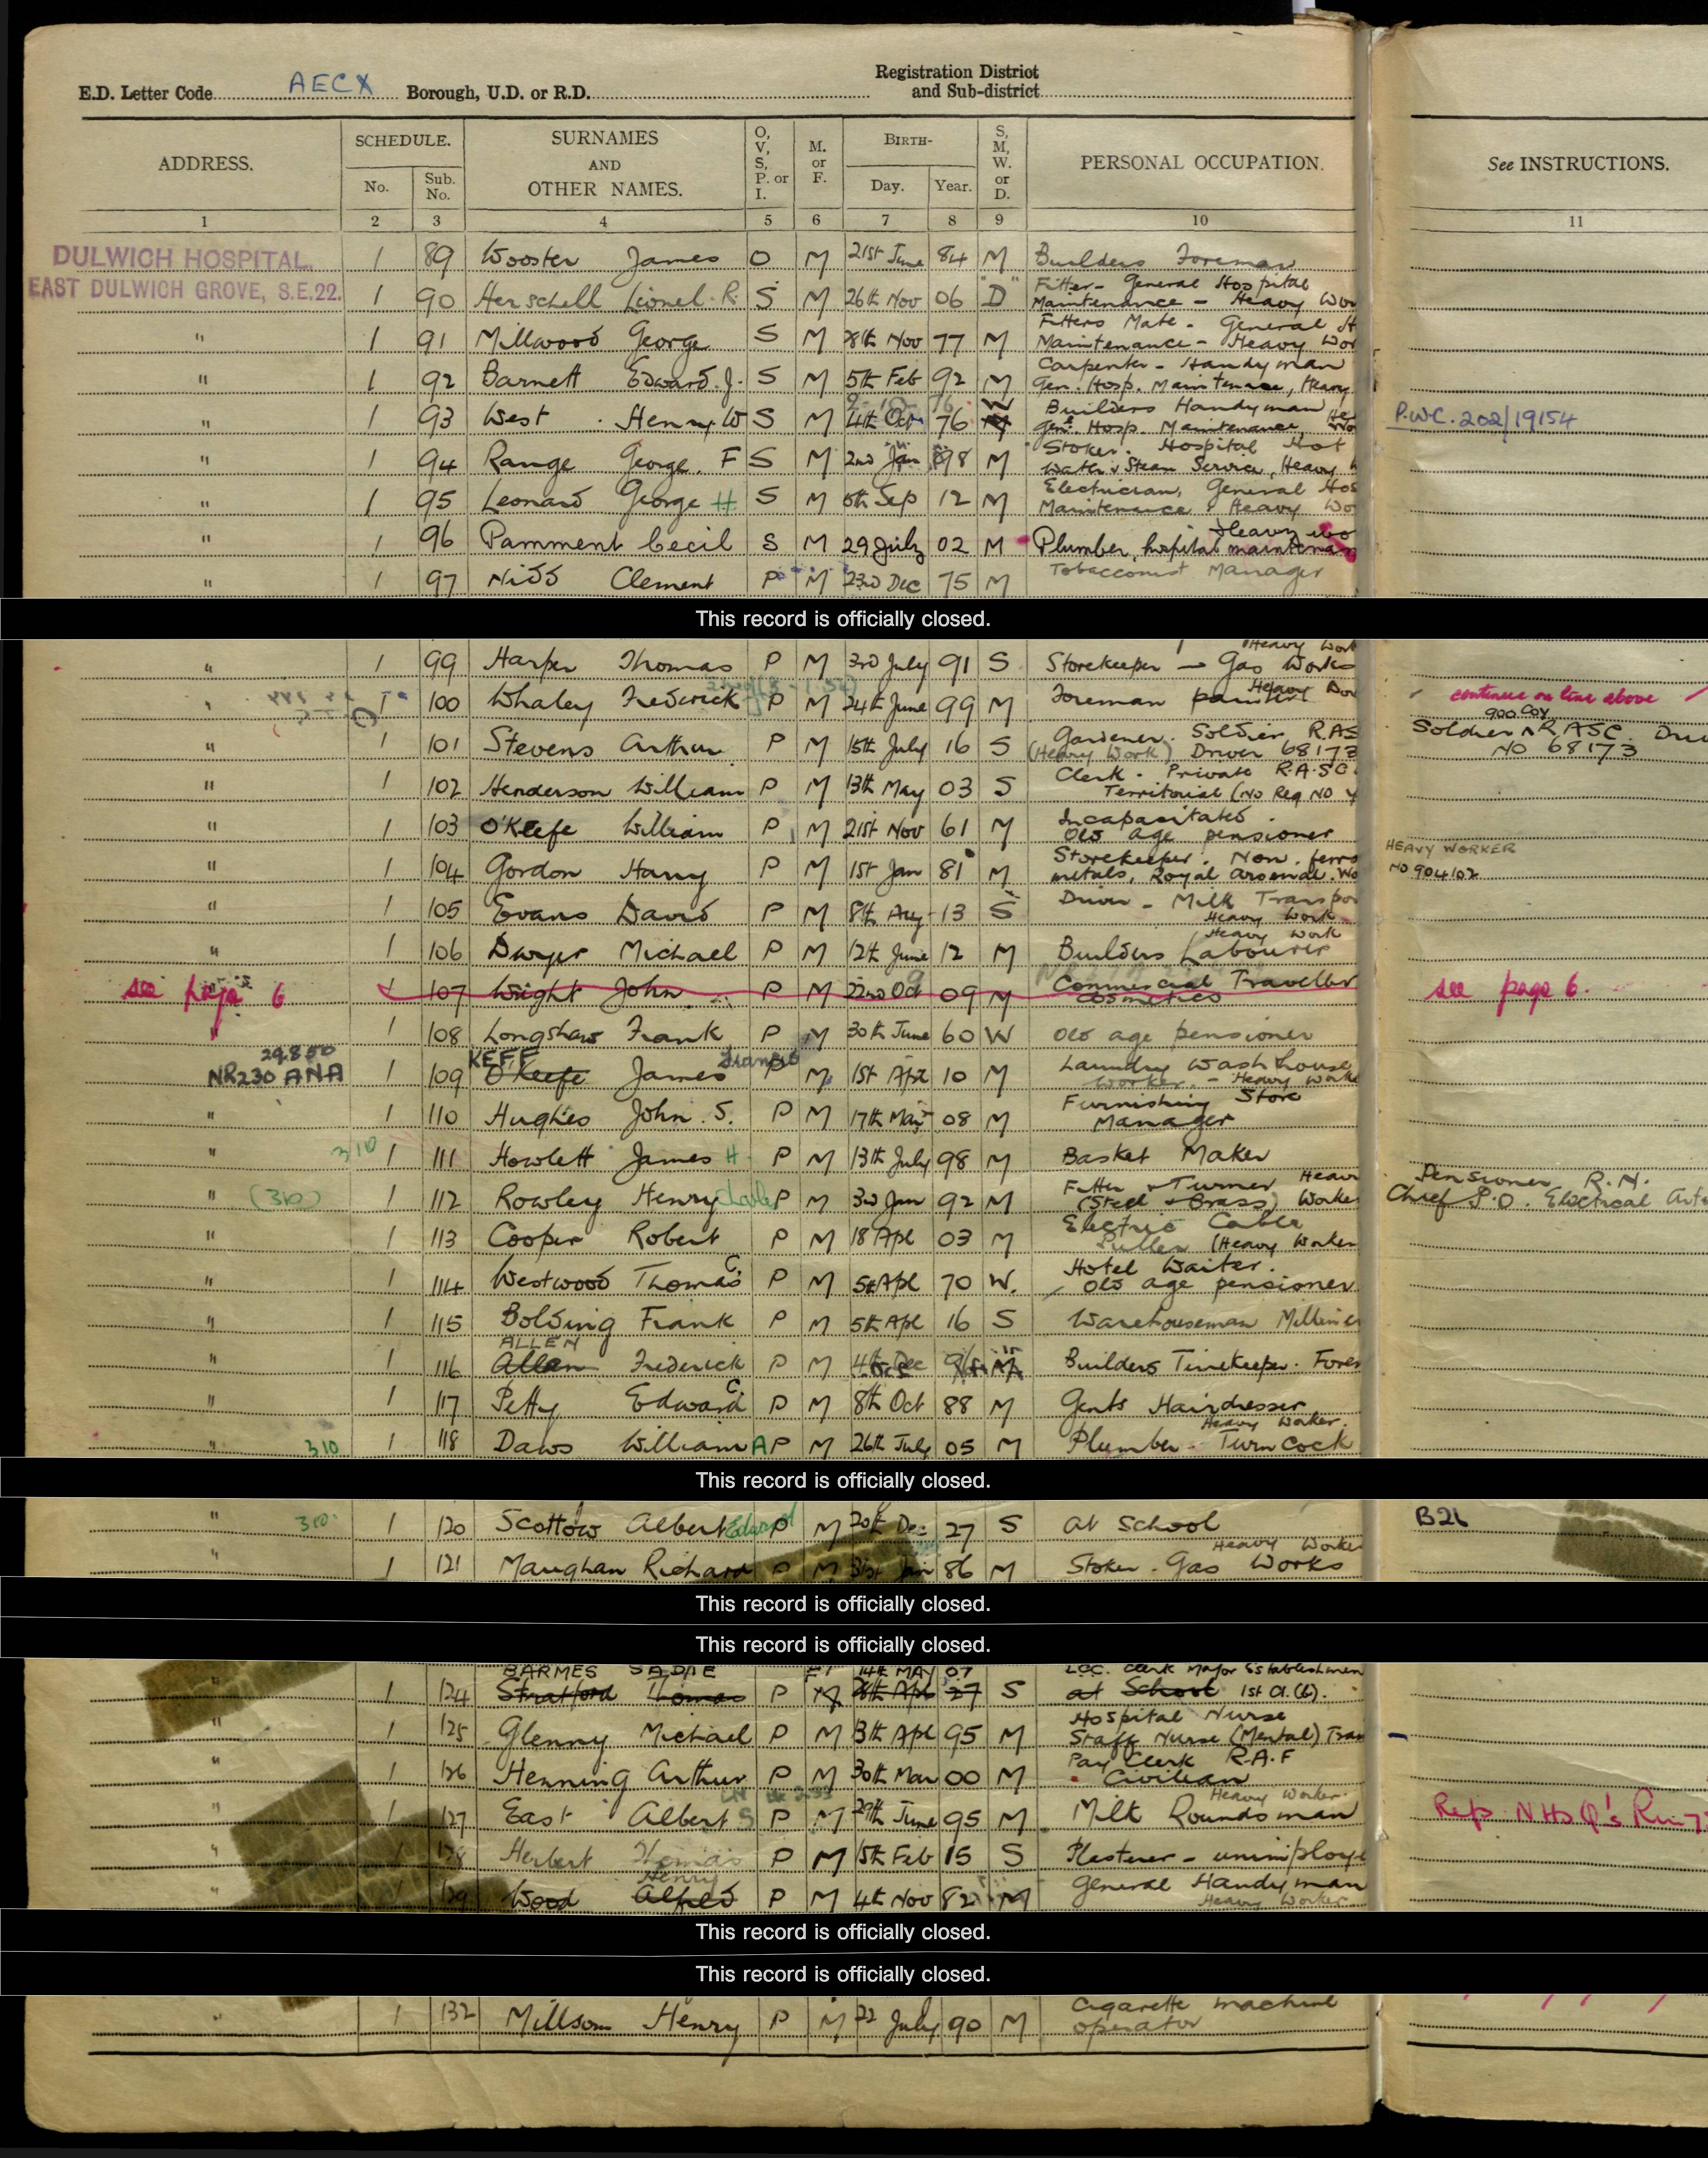 E.D. Letter Code AECX Borough, U.D. or R.D. Registration District and Sub-district
ADDRESS. SCHEDULE. No. Sub. No. SURNAMES AND OTHER NAMES. O, V, S, P. or I. M. or F. BIRTH- Day. Year. S, M, W. or D. PERSONAL OCCUPATION. See INSTRUCTIONS.
1 2 3 4 5 6 7 8 9 10 11
DULWICH HOSPITAL, 1 89 Wooster James O M 21st June 84 M Builders Foreman
EAST DULWICH GROVE, S.E.22. 1 90 Herschell Lionel. R. S M 26th Nov 06 "D" Fitter - General Hospital Maintenance - Heavy Wor
" 1 91 Millwood George S M 28th Nov 77 M Fitters Mate - General H Maintenance - Heavy Wor
" 1 92 Barnett Edward. J. S M 5th Feb 92 M Carpenter - Handyman Gen. Hosp. Maintenance, Heavy
" 1 93 West Henry W S M 4th Oct 76 W Builders Handyman Gen. Hosp. Maintenance, P.W.C. 202/19154
" 1 94 Range George. F S M 2nd Jan 98 M Stoker. Hospital Hot Water & Steam Service, Heavy W
" 1 95 Leonard George H. S M 6th Sep 12 M Electrician, General Hos Maintenance & Heavy Wo
" 1 96 Pamment Cecil S M 29 July 02 M Plumber, hospital maintenan Heavy wo
" 1 97 Nidd Clement P M 23rd Dec 75 M Tobacconist Manager
This record is officially closed.
" 1 99 Harper Thomas P M 3rd July 91 S Storekeeper - Gas Works Heavy Work
" 1 100 Whaley Frederick P M 24th June 99 M Foreman painter Heavy Wor continue on line above
" 1 101 Stevens Arthur P M 15th July 16 S Gardener. Soldier R.AS (Heavy Work) Driver 68173 900 Coy Soldier RASC. Dri No 68173
" 1 102 Henderson William P M 13th May 03 S Clerk - Private R.A.S.C. Territorial (No Reg No
" 1 103 O'Keefe William P M 21st Nov 61 M Incapacitated. Old age pensioner
" 1 104 Gordon Harry P M 1st Jan 81 M Storekeeper. Non. ferro metals, Royal Arsenal. Wo HEAVY WORKER NO 904102
" 1 105 Evans David P M 8th Aug 13 S Driver - Milk Transpor Heavy Work
" 1 106 Dwyer Michael P M 12th June 12 M Builders Labourer Heavy Work
see page 6 1 107 Wright John P M 22nd Oct 09 M Commercial Traveller Cosmetics see page 6.
" 1 108 Longshaw Frank P M 30th June 60 W Old age pensioner
29.8.50 NR230 ANA 1 109 KEFF O'Keefe James Francis P M 1st Apl 10 M Laundry Wash house Worker - Heavy Worke
" 1 110 Hughes John. S. P M 17th May 08 M Furnishing Store Manager
" 310 1 111 Howlett James H P M 13th July 98 M Basket Maker
" (310) 1 112 Rowley Henry Charles P M 3rd Jan 92 M Fitter & Turner Heavy (Steel & Brass) Worke Pensioner R.N. Chief P.O. Electrical Arti
" 1 113 Cooper Robert P M 18 Apl 03 M Electric Cable Puller (Heavy Worker
" 1 114 Westwood Thomas C. P M 5th Apl 70 W. Hotel Waiter. Old age pensioner
" 1 115 Bolding Frank P M 5th Apl 16 S Warehouseman Milliner
" 1 116 ALLEN Allan Frederick P M 4th Dec M Builders Timekeeper. Fore
" 1 117 Petty Edward C. P M 8th Oct 88 M Gents Hairdresser
" 310 1 118 Daws William A P M 26th July 05 M Plumber - Turn Cock Heavy Worker.
This record is officially closed.
" 310. 1 120 Scottow Albert Edward P M 20th Dec 27 S at School B26
" 1 121 Maughan Richard P M 31st Jan 86 M Stoker - Gas Works Heavy Worker
This record is officially closed.
This record is officially closed.
BARMES SADIE F 14th MAY 07 L.C.C. Clerk Major Establishmen
" 1 124 Stratford Thomas P M 28th Apl 27 S at School 1st Cl. (6).
" 1 125 Glenny Michael P M 13th Apl 95 M Hospital Nurse Staff Nurse (Mental) Tra
" 1 126 Henning Arthur P M 30th Mar 00 M Pay Clerk R.A.F Civilian
" 1 127 East Albert S P M 29th June 95 M Milk Roundsman Heavy Worker.
" 1 128 Herbert Thomas P M 15th Feb 15 S Plasterer - unemploye
" 1 129 Wood Alfred Henry P M 4th Nov 82 M General Handyman Heavy Worker
This record is officially closed.
This record is officially closed.
" 1 132 Millsom Henry P M 22 July 90 M Cigarette machine operator